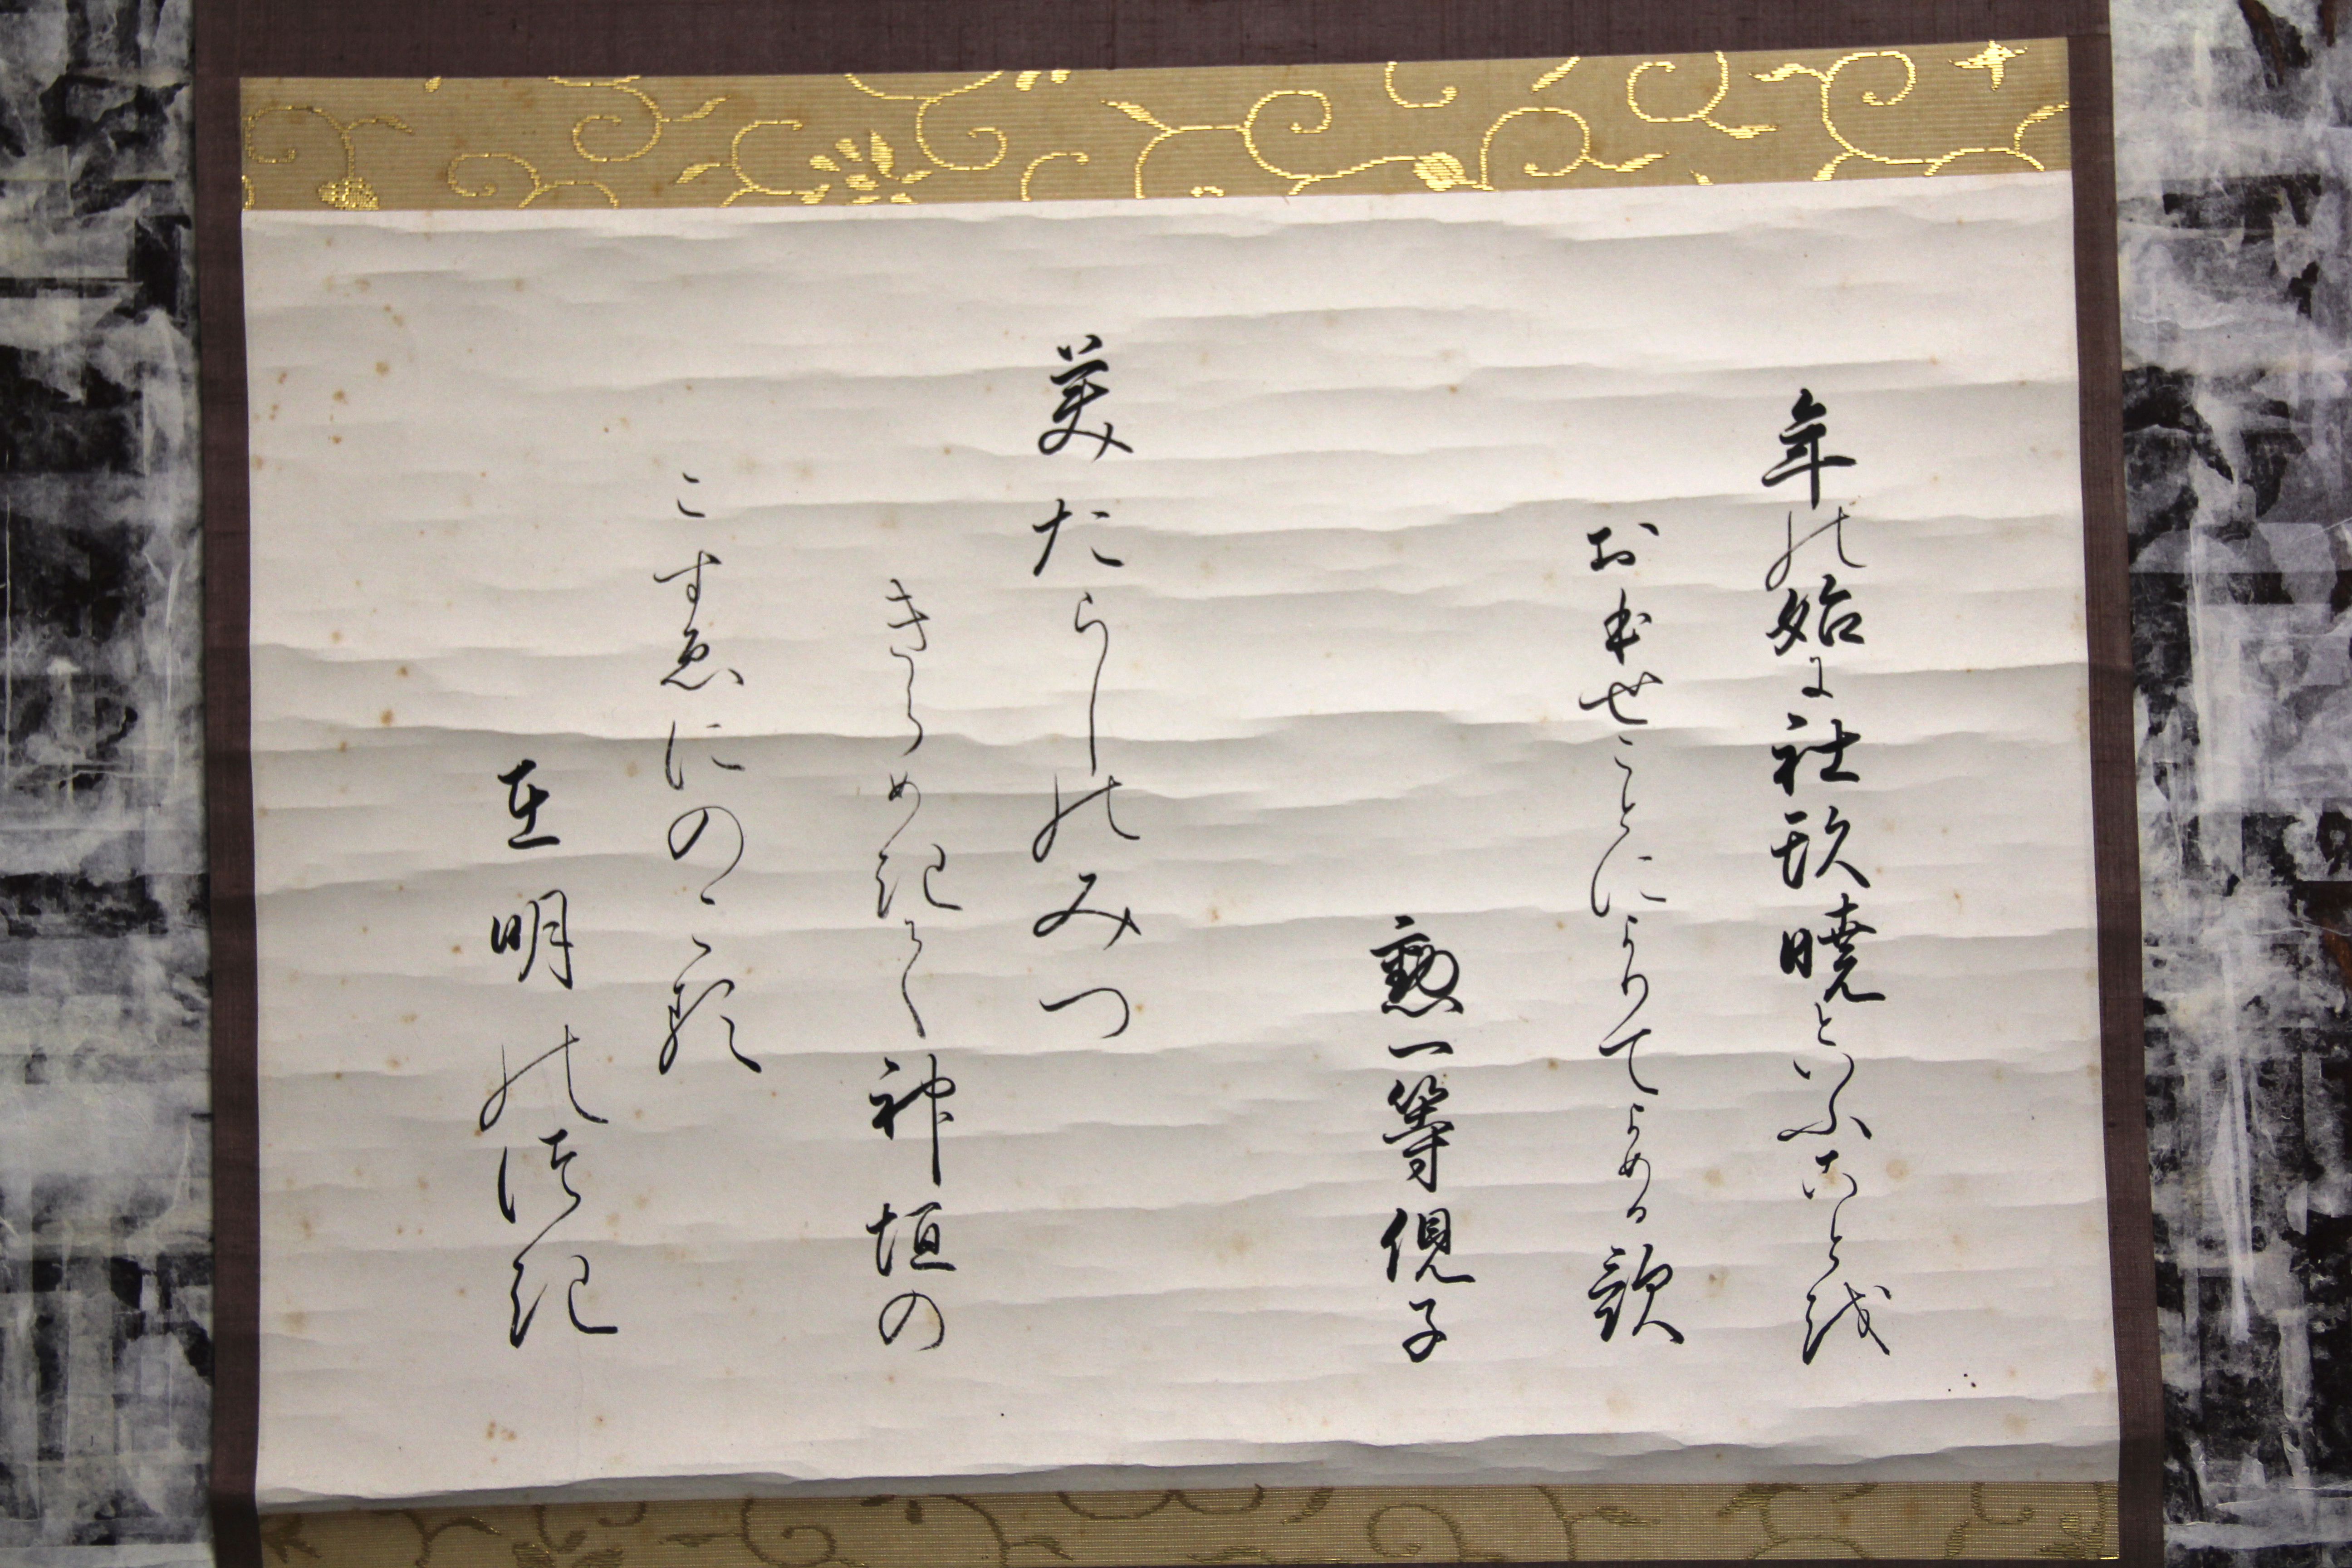 年の始に社頭暁といふことを
おほせことによりてよめる歌
勲一等俔子
みたらしのみつ
きらめきて神垣の
こすゑにのこる
在明のつき